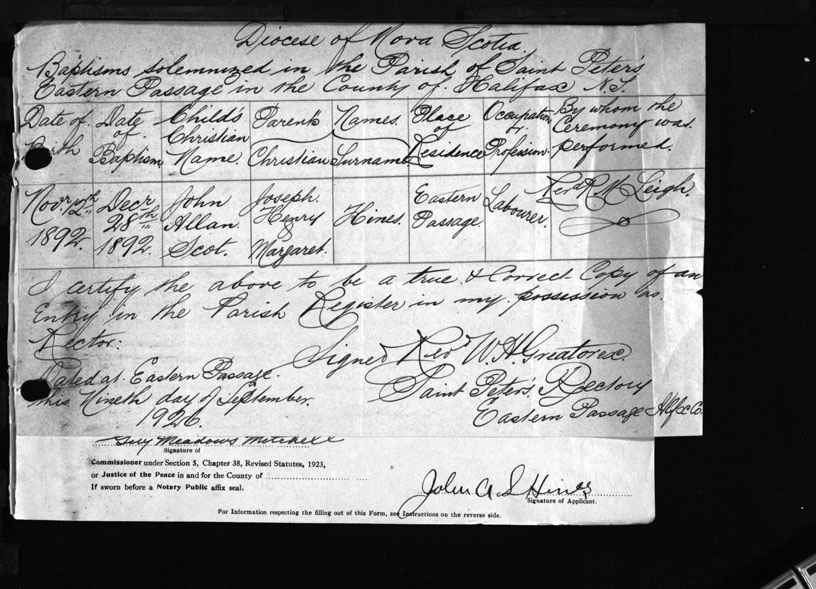 Diocese of Nova Scotia.
Baptisms solemnized in the Parish of Saint Peter's
Eastern Passage in the County of Halifax N.S.
Date of Birth | Date of Baptism | Child's Christian Name | Parent's Names. Christian | Surname | Place of Residence | Occupation or Profession. | By whom the Ceremony was performed.
Novr 12th 1892. | Decr 28th 1892. | John Allan Scot. | Joseph. Henry & Margaret. | Hines. | Eastern Passage | Labourer. | Revd R. M. Leigh.
I certify the above to be a true & Correct Copy of an
Entry in the Parish Register in my possession as.
Rector:
Signed Revd W. H. Greatorex.
Dated at Eastern Passage.
Saint Peter's. Rectory
this Nineth day of September.
Eastern Passage Hlfx Co.
1926.
Guy Meadows Mitchell
Signature of
Commissioner under Section 5, Chapter 38, Revised Statutes, 1923,
or Justice of the Peace in and for the County of
If sworn before a Notary Public affix seal.
John A S Hines
Signature of Applicant.
For Information respecting the filling out of this Form, see Instructions on the reverse side.